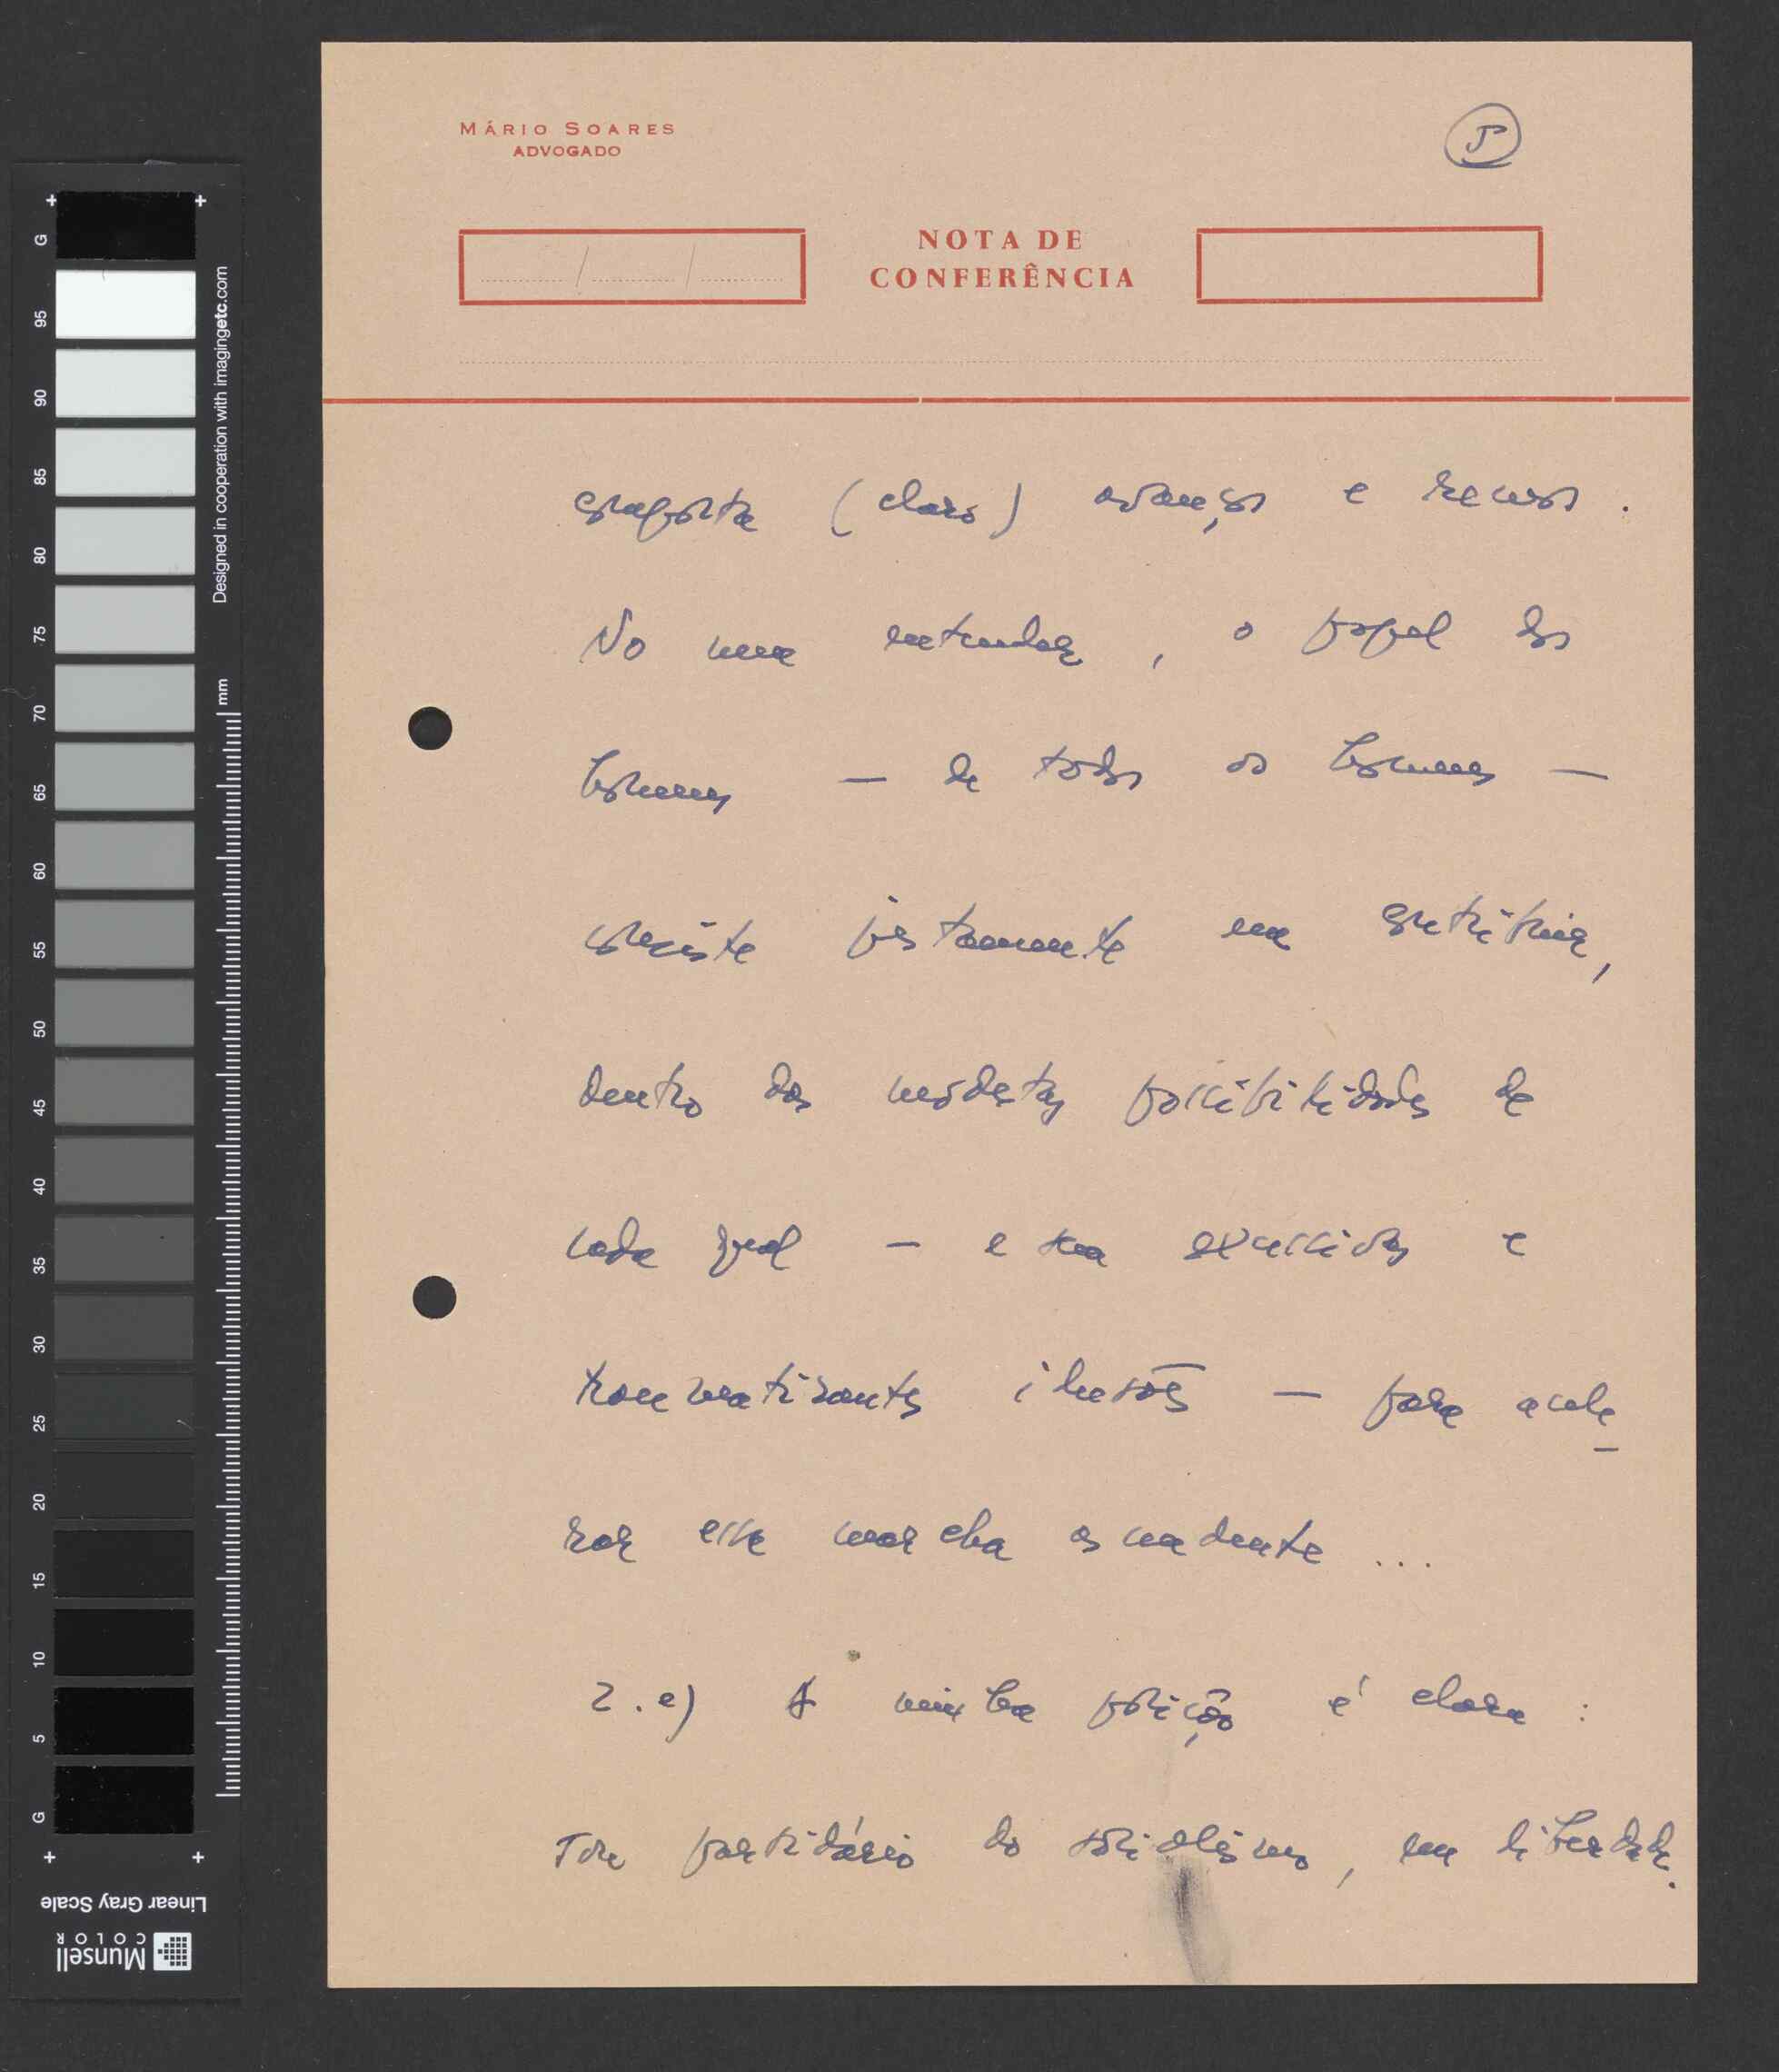 MÁRIO SOARES
ADVOGADO
5
NOTA DE
CONFERÊNCIA
comporta (claro) avanços e recuos.
No meu entender, o papel dos
homens — de todos os homens —
consiste justamente em contribuir,
dentro das modestas possibilidades de
cada qual — e sem excessivas e
traumatizantes ilusões — para acele
rar essa marcha ascendente ...
2.e) A minha posição é clara:
Sou partidário do socialismo, em liberdade.
G
95
90
85
80
75
70
65
60
55
50
45
40
35
30
25
20
15
10
5
G
Designed in cooperation with imagingetc.com
mm
Linear Gray Scale
Munsell
COLOR